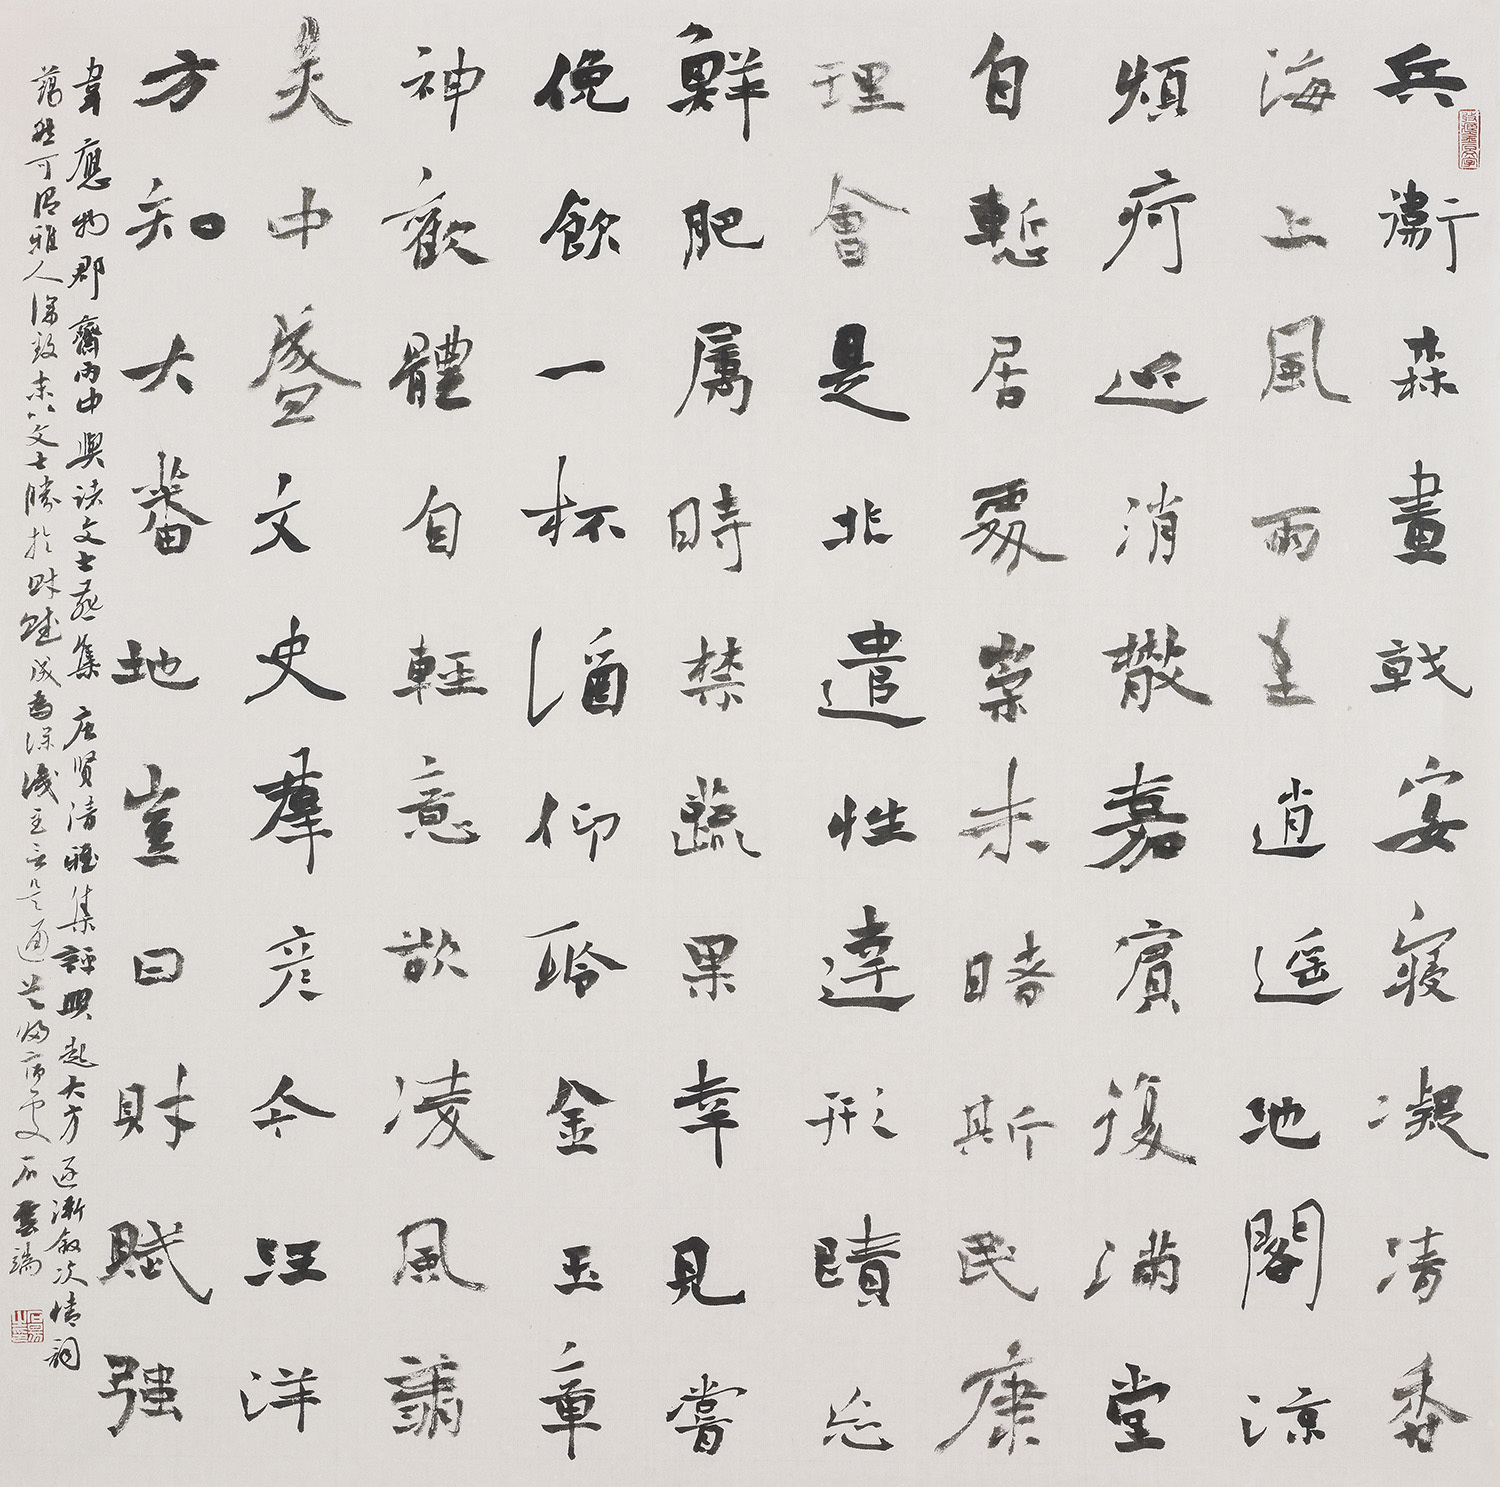 兵衛森畫戟宴寢凝清香
海上風雨至逍遥池閣涼
煩疴近消散嘉賓復滿堂
自慙居處崇未睹斯民康
理會是非遣性達形蹟忘
鮮肥属時禁蔬果幸見嘗
俛飲一杯酒仰聆金玉章
神歡體自輕意欲凌風翔
吴中盛文史羣彦今汪洋
方知大藩地豈曰財賦强
韋應物郡齋雨中與諸文士燕集 唐賢清雅集評興起大方逐漸叙次情詞
藹然可謂雅人深致末以文士勝於財賦成為深識至言是通首歸宿處 石雲端